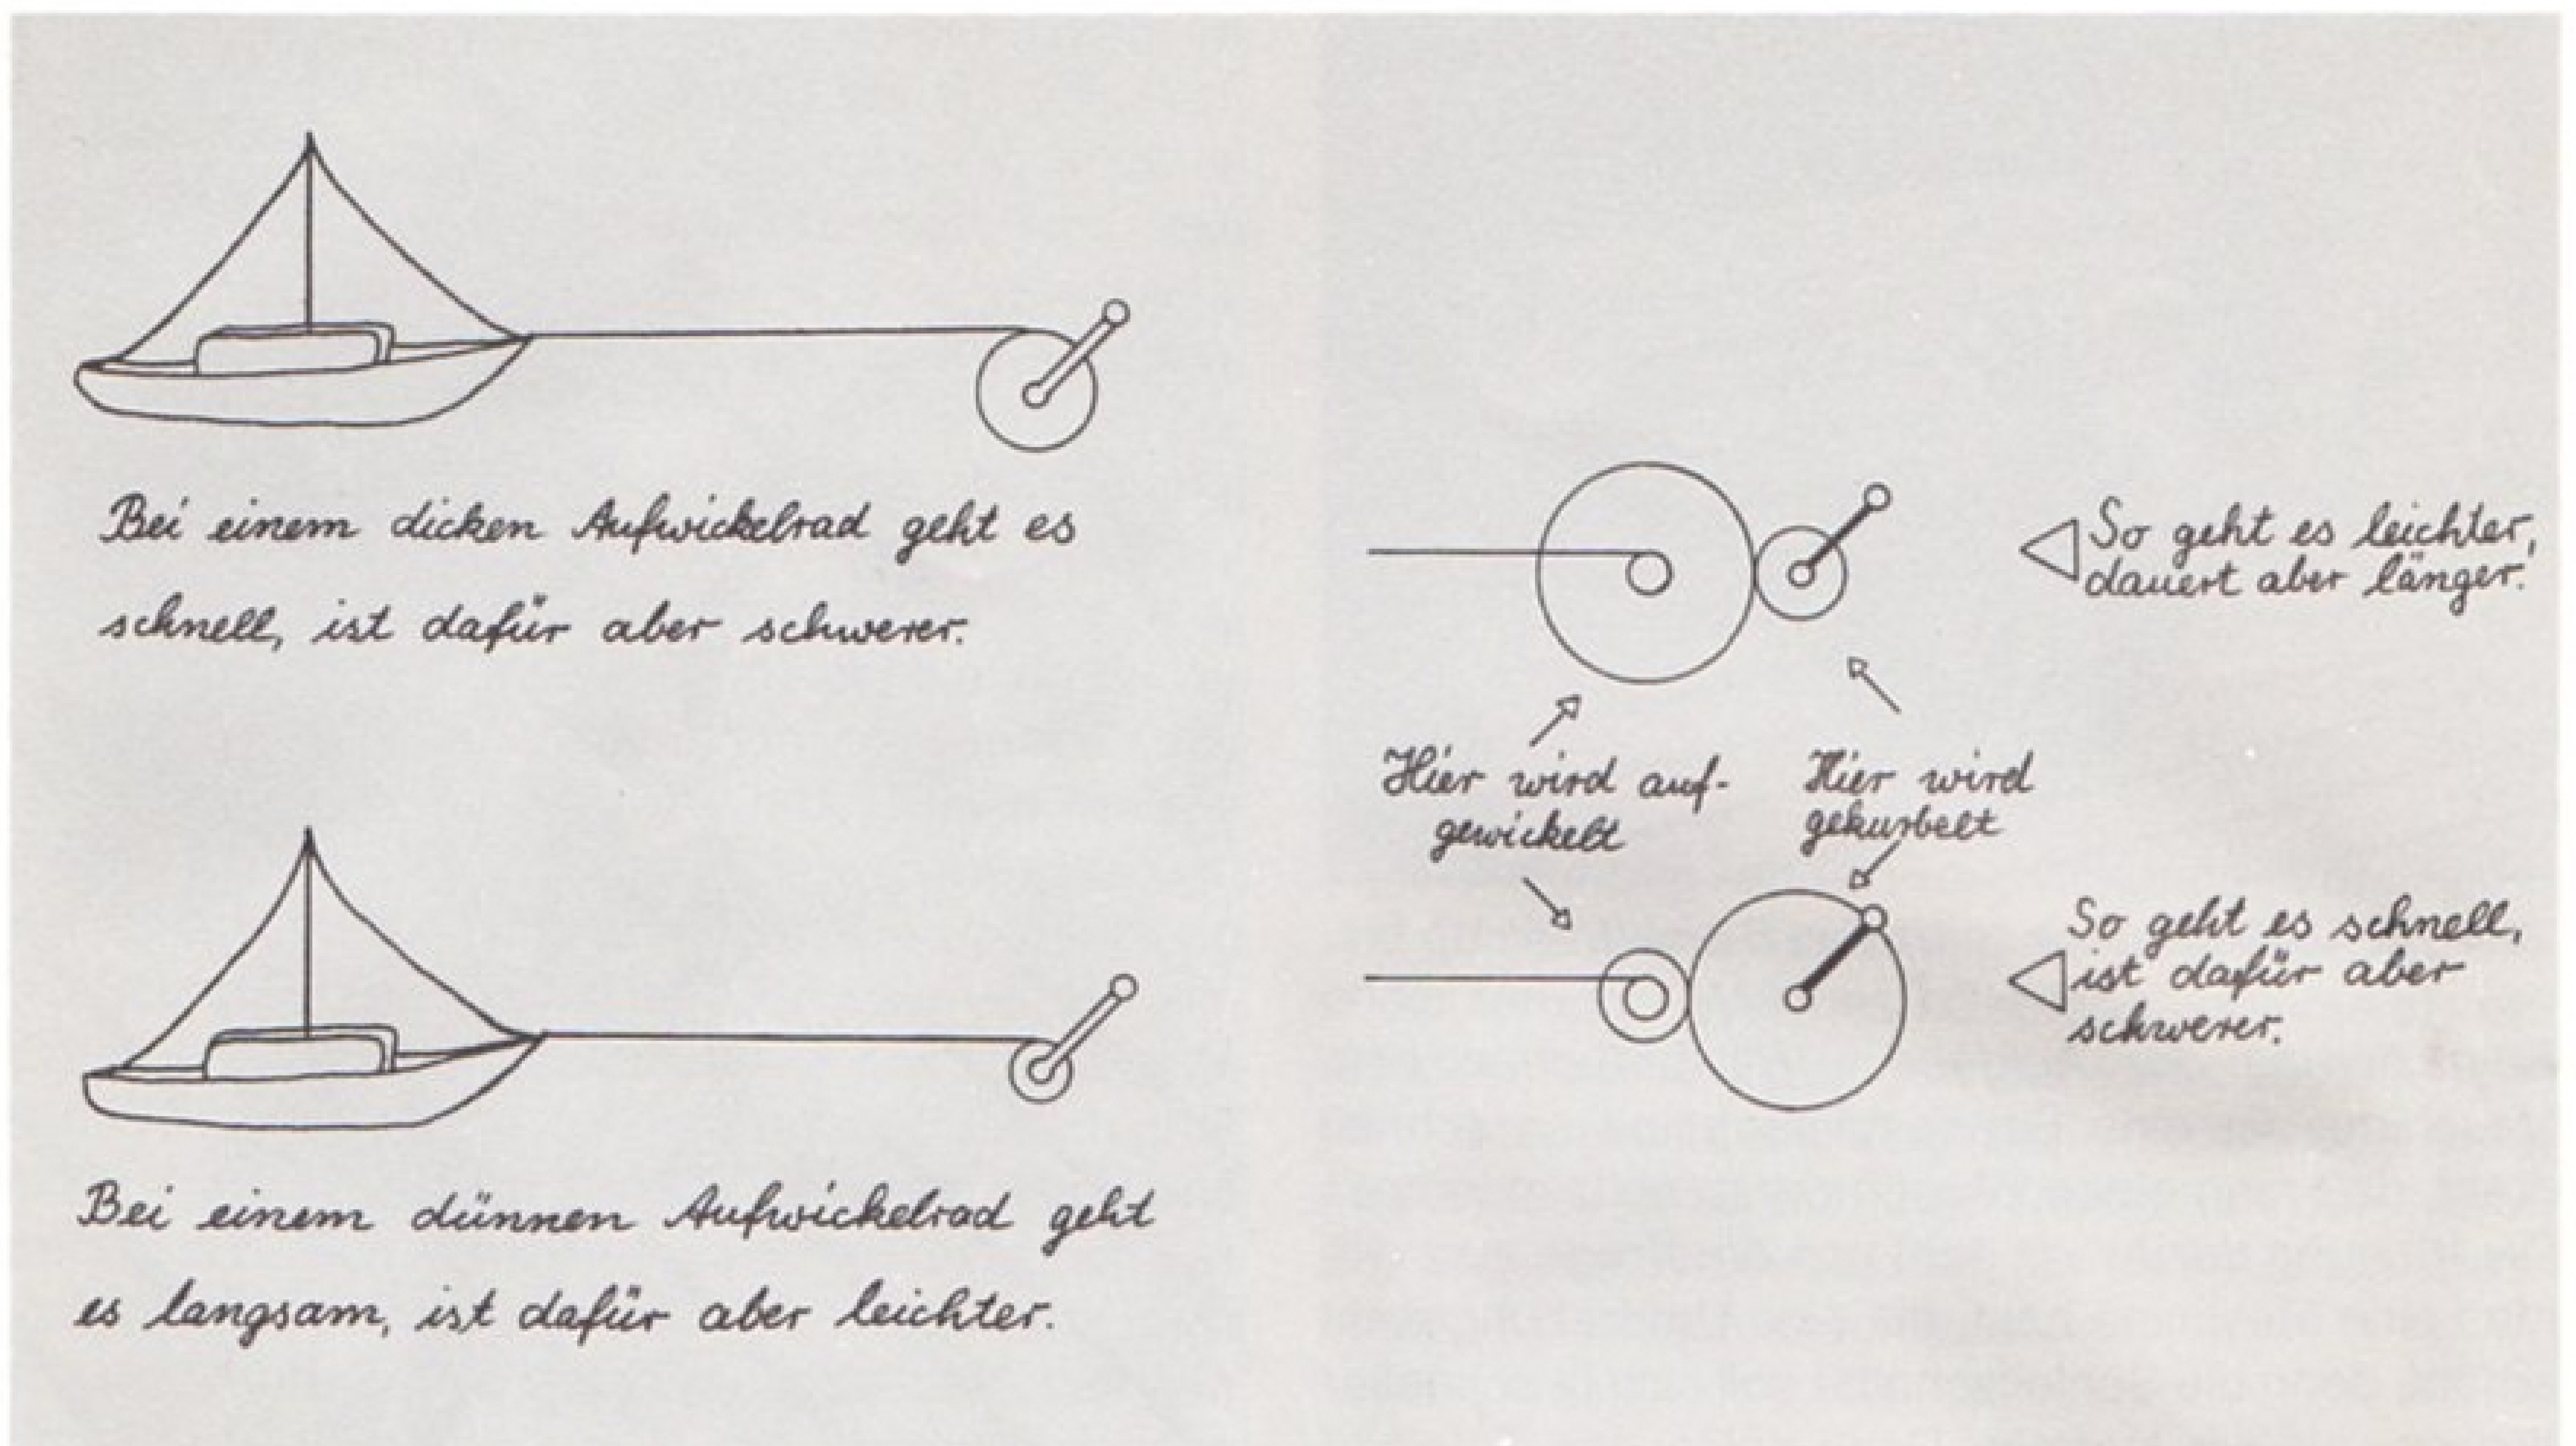 Bei einem dicken Aufwickelrad geht es
schnell, ist dafür aber schwerer.
Bei einem dünnen Aufwickelrad geht
es langsam, ist dafür aber leichter.
So geht es leichter,
dauert aber länger.
Hier wird auf-
gewickelt
Hier wird
gekurbelt
So geht es schnell,
ist dafür aber
schwerer.